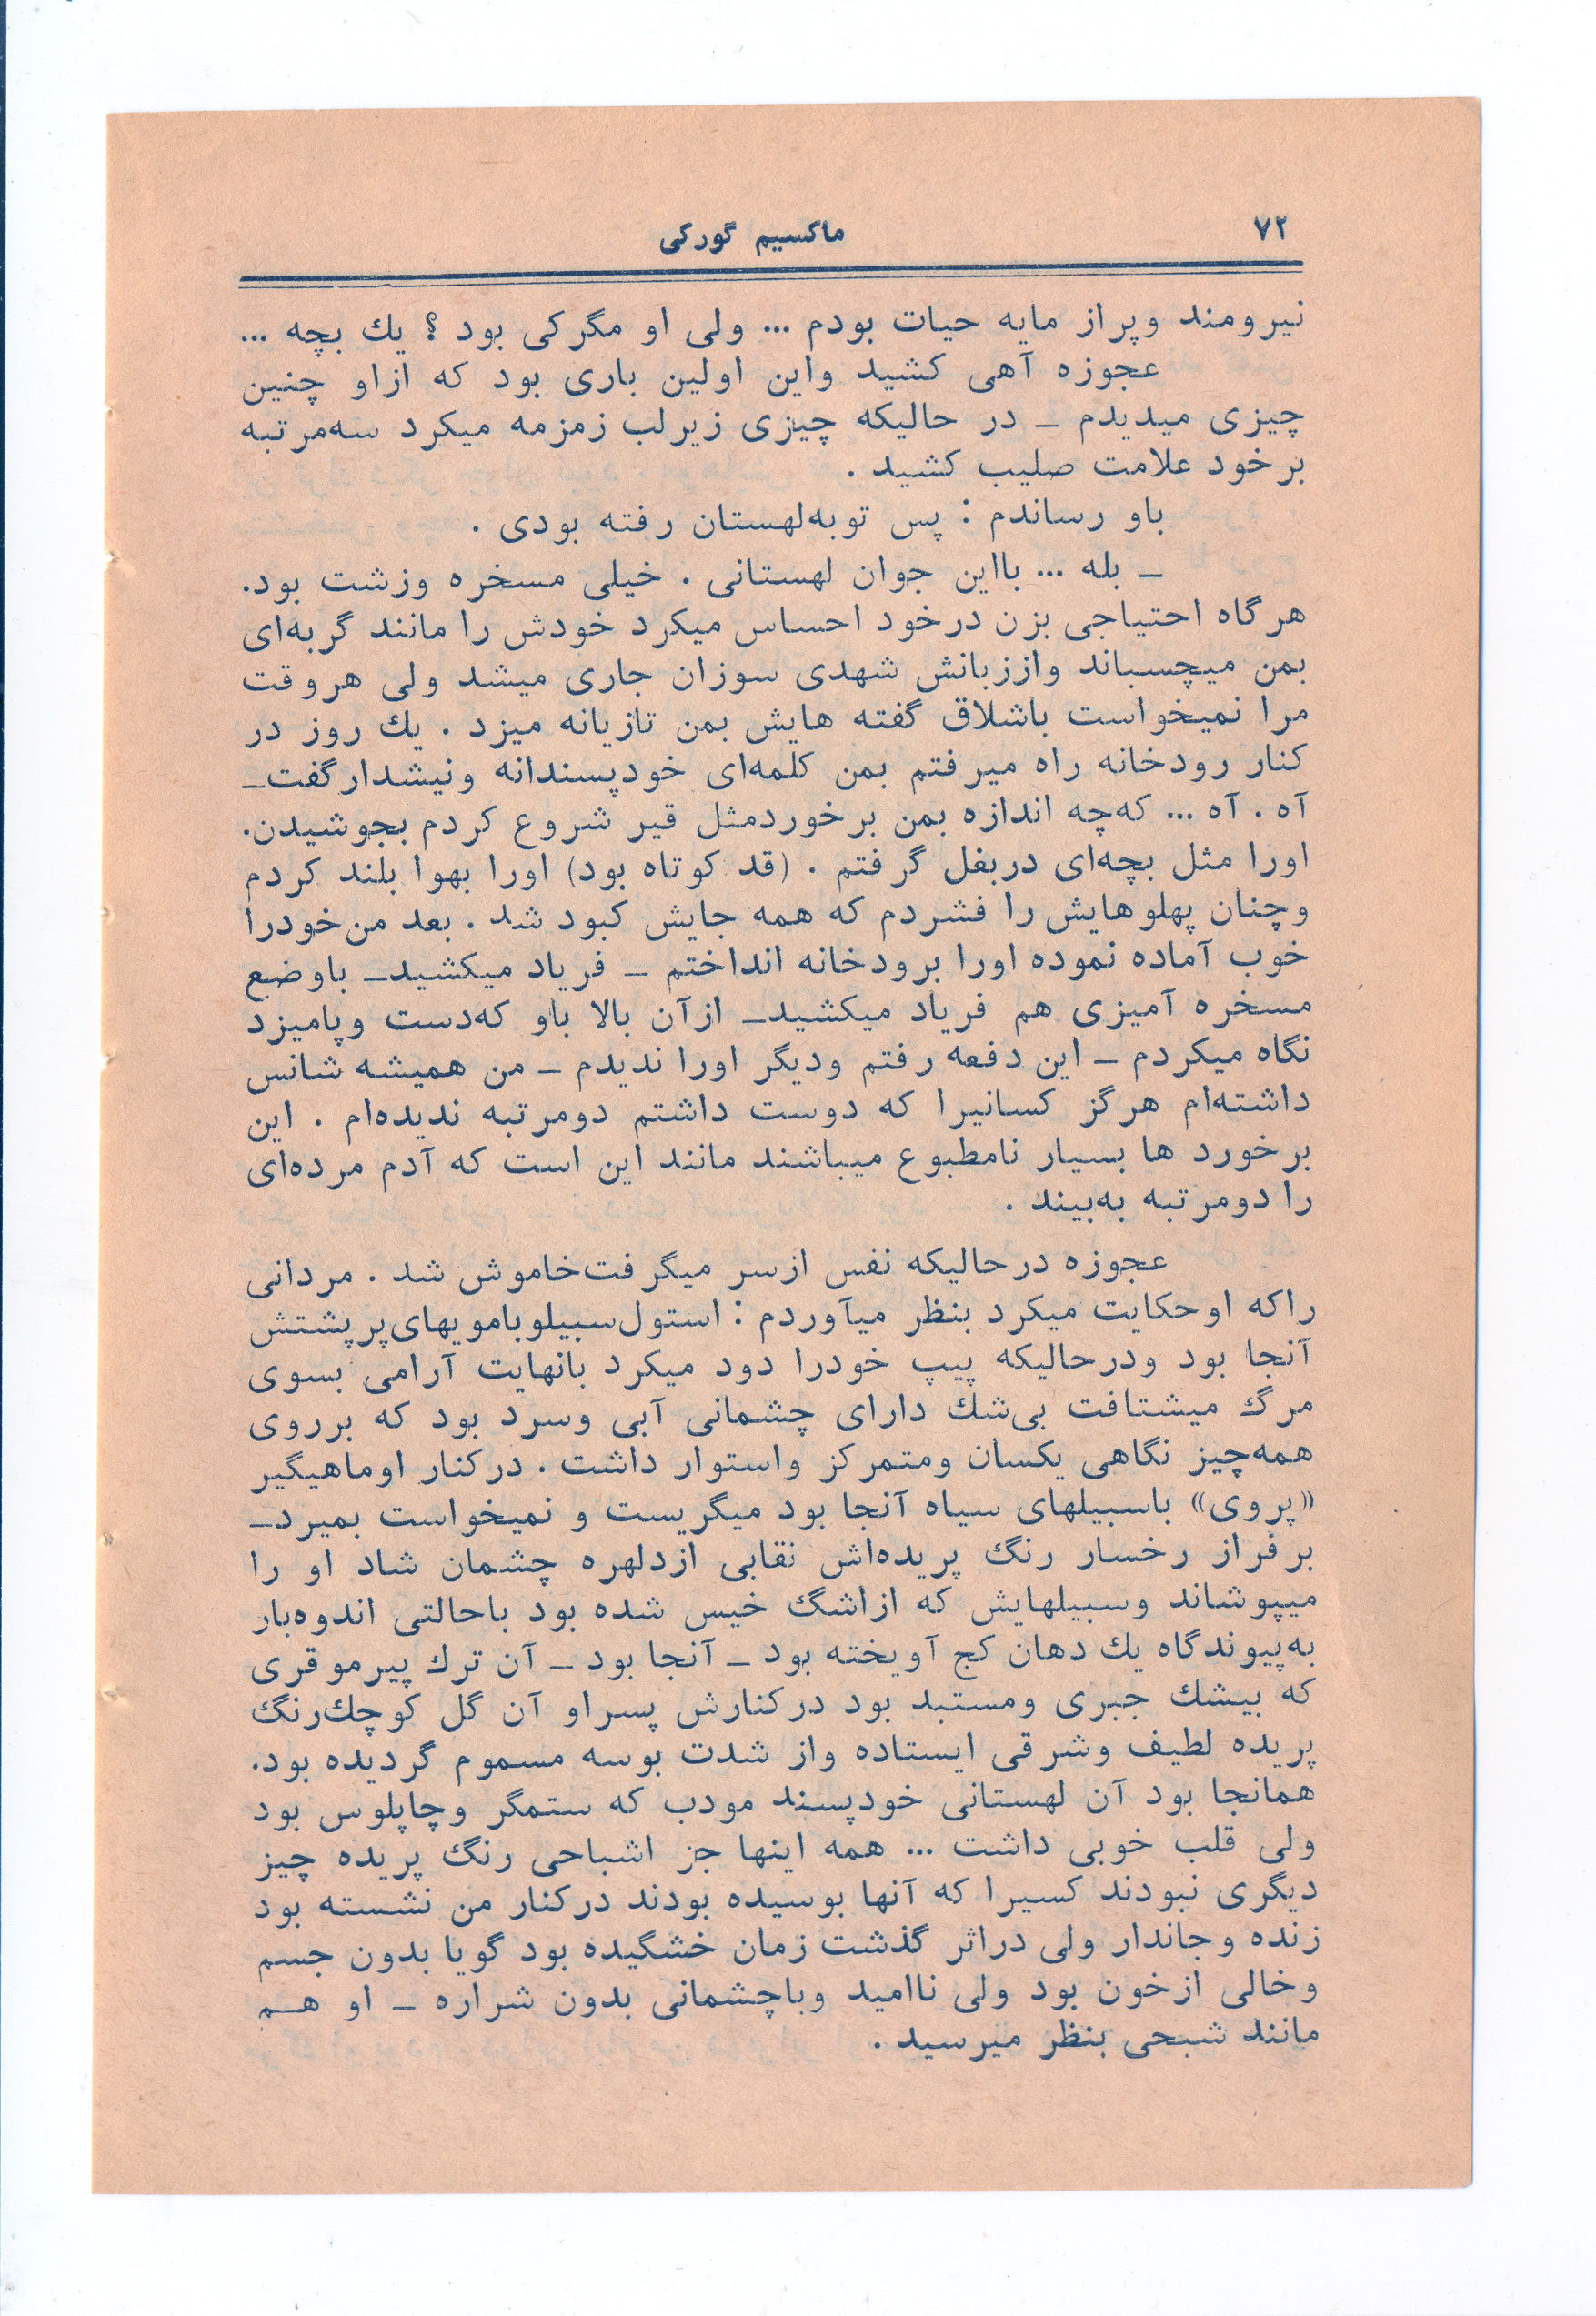 ۷۲
ماکسیم گورکی
نیرومند وپراز مایه حیات بودم ... ولی او مگرکی بود ؟ یك بچه ...
عجوزه آهی کشید واین اولین باری بود که ازاو چنین
چیزی میدیدم ـ در حالیکه چیزی زیرلب زمزمه میکرد سه‌مرتبه
برخود علامت صلیب کشید .
باو رساندم : پس توبه‌لهستان رفته بودی .
ـ بله ... بااین جوان لهستانی . خیلی مسخره وزشت بود.
هرگاه احتیاجی بزن درخود احساس میکرد خودش را مانند گربه‌ای
بمن میچسباند واززبانش شهدی سوزان جاری میشد ولی هروقت
مرا نمیخواست باشلاق گفته هایش بمن تازیانه میزد . یك روز در
کنار رودخانه راه میرفتم بمن کلمه‌ای خودپسندانه ونیشدارگفت‌ـ
آه . آه ... که‌چه اندازه بمن برخوردمثل قیر شروع کردم بجوشیدن.
اورا مثل بچه‌ای دربغل گرفتم . (قد کوتاه بود) اورا بهوا بلند کردم
وچنان پهلوهایش را فشردم که همه جایش کبود شد . بعد من‌خودرا
خوب آماده نموده اورا برودخانه انداختم ـ فریاد میکشیدـ باوضع
مسخره آمیزی هم فریاد میکشیدـ ازآن بالا باو که‌دست وپامیزد
نگاه میکردم ـ این دفعه رفتم ودیگر اورا ندیدم ـ من همیشه شانس
داشته‌ام هرگز کسانیرا که دوست داشتم دومرتبه ندیده‌ام . این
برخورد ها بسیار نامطبوع میباشند مانند این است که آدم مرده‌ای
را دومرتبه به‌بیند .
عجوزه درحالیکه نفس ازسر میگرفت‌خاموش شد . مردانی
راکه اوحکایت میکرد بنظر میآوردم : استول‌سبیلوبامویهای‌پرپشتش
آنجا بود ودرحالیکه پیپ خودرا دود میکرد بانهایت آرامی بسوی
مرگ میشتافت بی‌شك دارای چشمانی آبی وسرد بود که برروی
همه‌چیز نگاهی یکسان ومتمرکز واستوار داشت . درکنار اوماهیگیر
«پروی» باسبیلهای سیاه آنجا بود میگریست و نمیخواست بمیردـ
برفراز رخسار رنگ پریده‌اش نقابی ازدلهره چشمان شاد او را
میپوشاند وسبیلهایش که ازاشگ خیس شده بود باحالتی اندوه‌بار
به‌پیوندگاه یك دهان کج آویخته بود ـ آنجا بود ـ آن ترك پیرموقری
که بیشك جبری ومستبد بود درکنارش پسراو آن گل کوچك‌رنگ
پریده لطیف وشرقی ایستاده واز شدت بوسه مسموم گردیده بود.
همانجا بود آن لهستانی خودپسند مودب که ستمگر وچاپلوس بود
ولی قلب خوبی داشت ... همه اینها جز اشباحی رنگ پریده چیز
دیگری نبودند کسیرا که آنها بوسیده بودند درکنار من نشسته بود
زنده وجاندار ولی دراثر گذشت زمان خشگیده بود گویا بدون جسم
وخالی ازخون بود ولی ناامید وباچشمانی بدون شراره ـ او هـم
مانند شبحی بنظر میرسید .